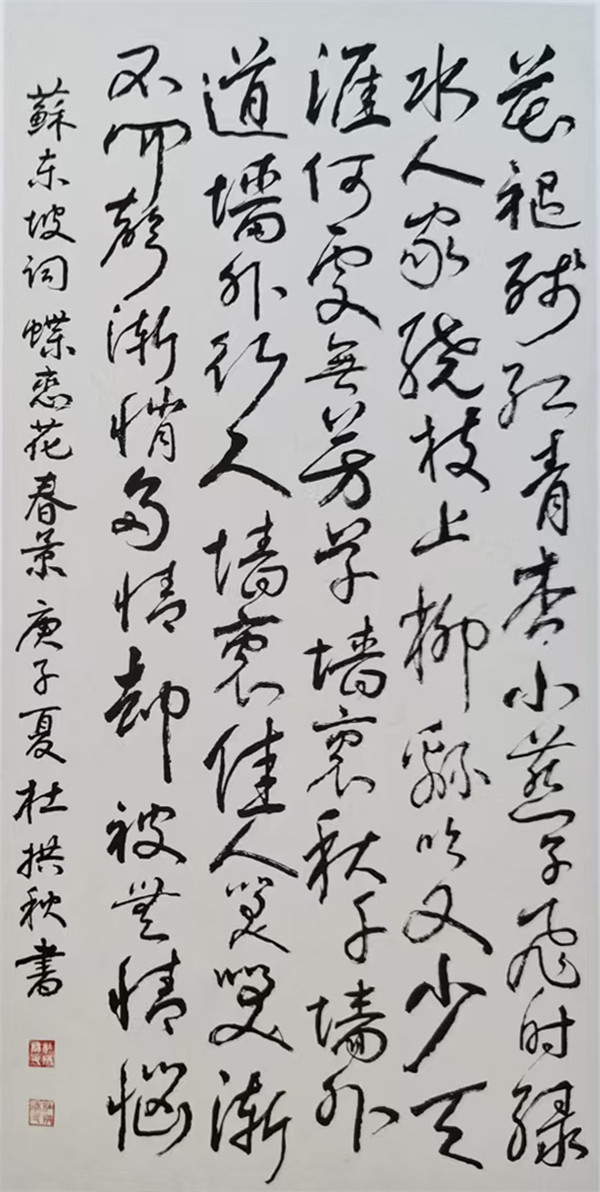 花褪残红青杏小燕子飞时绿
水人家绕枝上柳緜吹又少天
涯何处無芳草墙裏秋千墙外
道墙外行人墙裏佳人笑笑渐
不闻声渐悄多情却被無情恼
蘇东坡词蝶恋花春景庚子夏杜拱秋書